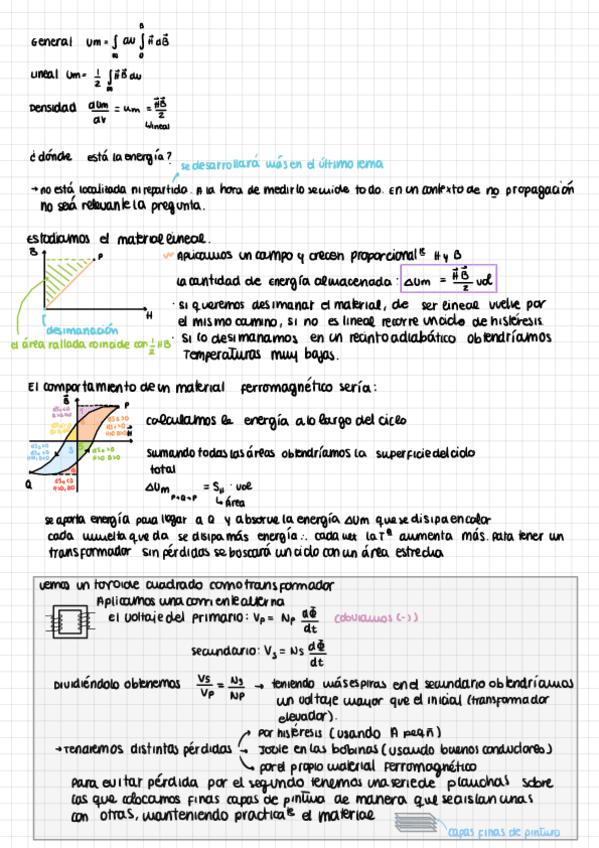 General Um = ∫m dv ∫0^B H⃗ dB⃗
Lineal Um = 1/2 ∫m H⃗ B⃗ dv
Densidad dUm/dv = um = H⃗B⃗/2
↳ lineal
¿dónde está la energía?
se desarrollará más en el último tema
→ no está localizada ni repartida. A la hora de medirlo se mide todo. En un contexto de no propagación
no será relevante la pregunta.
Estudiamos el material lineal.
B
P
H
desimanación
el área rallada coincide con 1/2 HB
Aplicamos un campo y crecen proporcional te H y B
La cantidad de energía almacenada: ΔUm = H⃗B⃗/2 vol
· si queremos desimanar el material, de ser lineal vuelve por
el mismo camino, si no es lineal recorre un ciclo de histéresis.
· Si lo desimanamos en un recinto adiabático obtendríamos
temperaturas muy bajas.
El comportamiento de un material ferromagnético sería:
B⃗
P
Q
calculamos la energía a lo largo del ciclo
sumando todas las áreas obtendríamos la superficie del ciclo
total
ΔUm P→Q→P = SH · vol
↳ Área
se aporta energía para llegar a Q y absorve la energía ΔUm que se disipa en calor
cada vuelta que da se disipa más energía ∴ cada vez la Tª aumenta más. Para tener un
transformador sin pérdidas se buscará un ciclo con un área estrecha
Vemos un toroide cuadrado como transformador
Aplicamos una corriente alterna
el voltaje del primario: Vp = Np dΦ/dt (obviamos (-))
secundario: Vs = Ns dΦ/dt
Dividiéndolo obtenemos Vs/Vp = Ns/Np → teniendo más espiras en el secundario obtendríamos
un voltaje mayor que el inicial (transformador
elevador).
por histéresis (usando A peqñ)
→ Tendremos distintas pérdidas → Joule en las bobinas (usando buenos conductores)
por el propio material ferromagnético
Para evitar pérdida por el segundo tenemos una serie de planchas sobre
las que colocamos finas capas de pintura de manera que se aislan unas
con otras, manteniendo practica te el material
capas finas de pintura